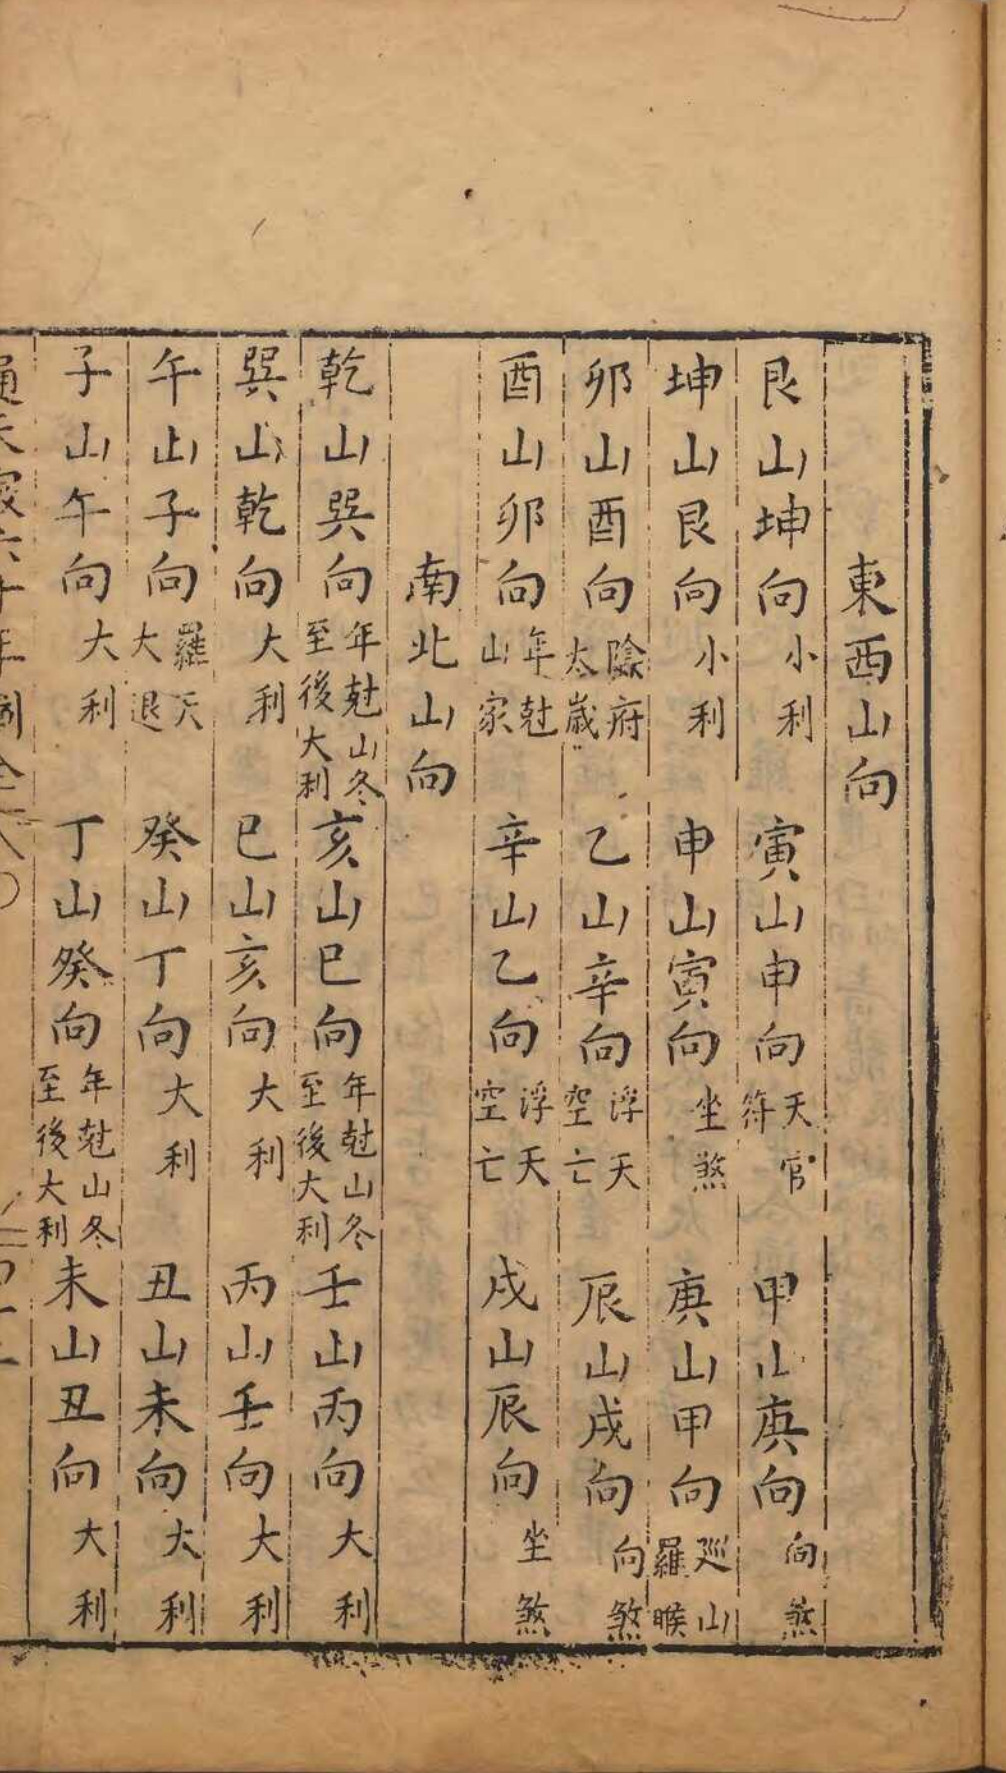 東西山向
艮山坤向小利 寅山申向天官符 甲山庚向向煞
坤山艮向小利 申山寅向坐煞 庚山甲向巡山羅睺
卯山酉向陰府太歲 乙山辛向浮天空亡 辰山戌向向煞
酉山卯向年尅山家 辛山乙向浮天空亡 戌山辰向坐煞
南北山向
乾山巽向年尅山冬至後大利 亥山巳向年尅山冬至後大利 壬山丙向大利
巽山乾向大利 巳山亥向大利 丙山壬向大利
午山子向羅天大退 癸山丁向大利 丑山未向大利
子山午向大利 丁山癸向年尅山冬至後大利 未山丑向大利